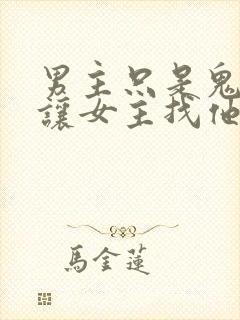 男主只是鬼
讓女主找他
馬金蓮